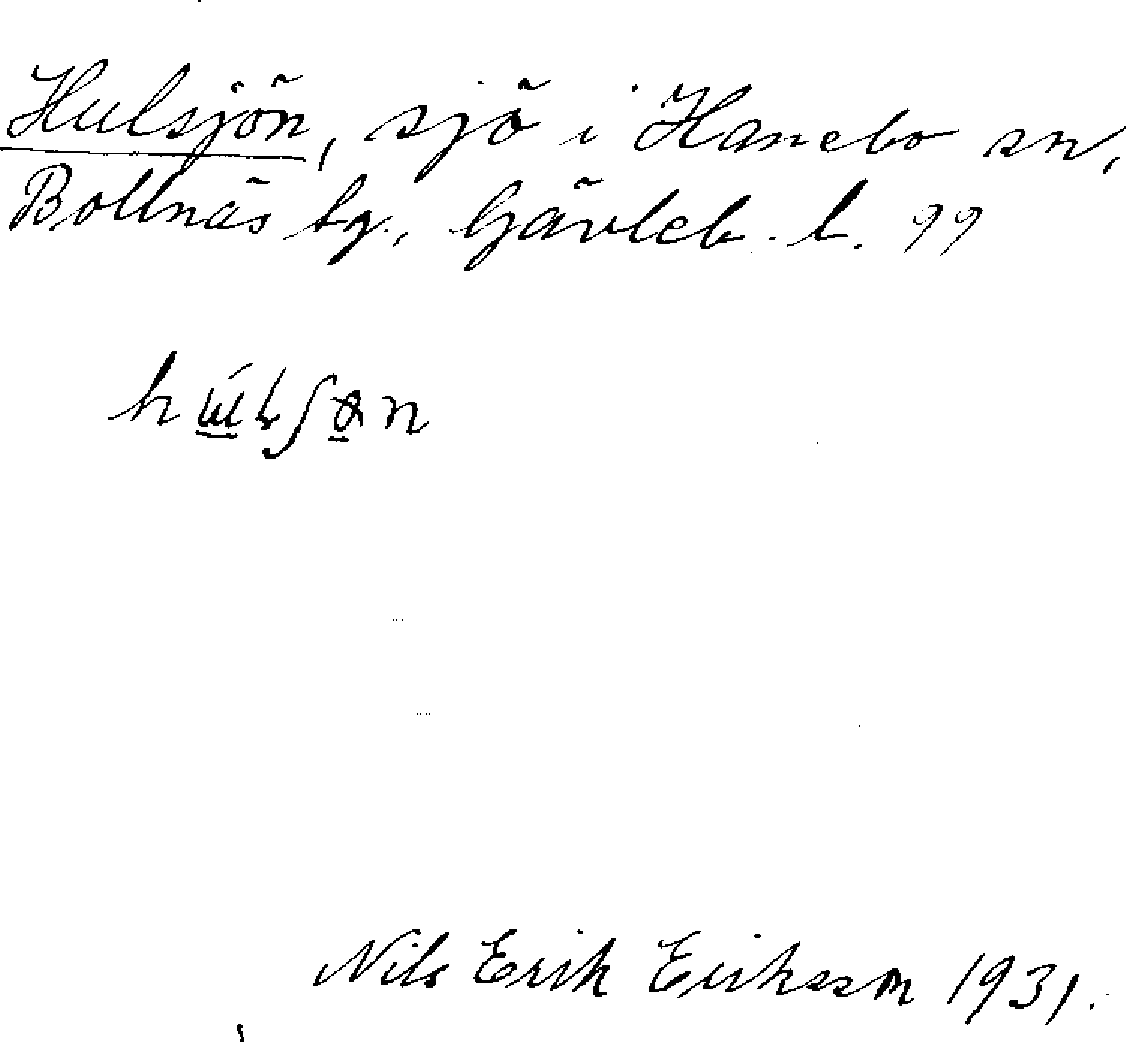 Hulsjön, sjö i Hanebo sn,
Bollnäs tg., Gävleb. l. 99
Nils Erik Eriksson 1931.